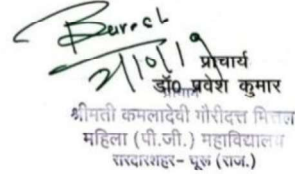 प्राचार्य
डॉ० प्रवेश कुमार
श्रीमती कमलादेवी गौरीदत्त मित्तल
महिला (पी.जी.) महाविद्यालय
सरदारशहर- चूरू (राज.)